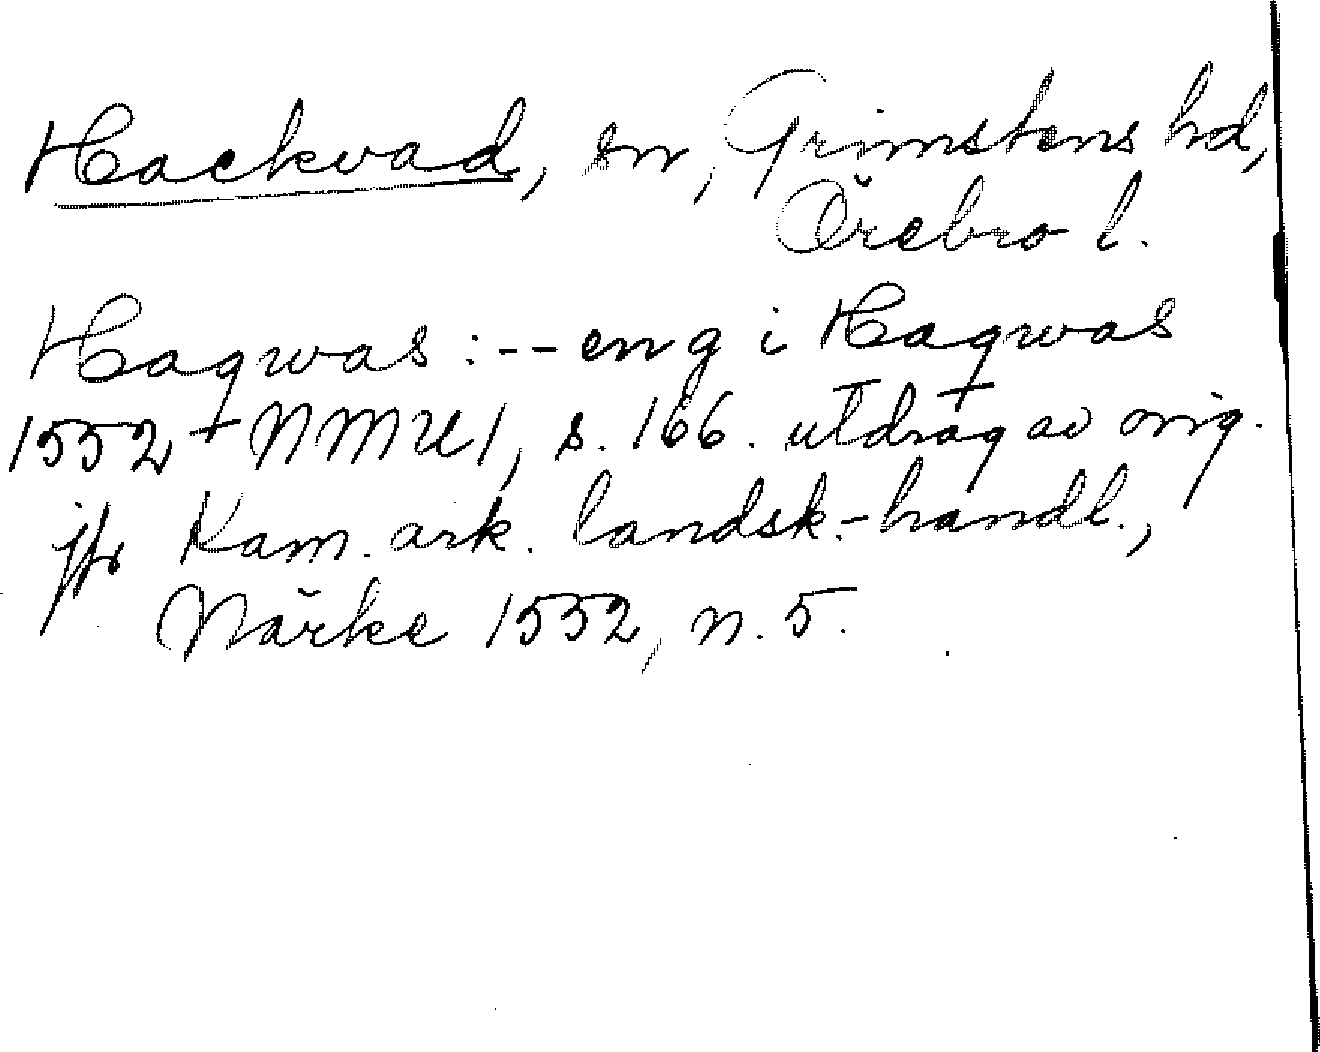 Hackvad, sn, Grimstens hd,
Örebro l.
Hagwas : -- eng i Hagwas
1552 + NMU 1, s. 166. utdrag av orig.
jfr Kam. ark. landsk.-handl.,
Närke 1552, n. 5.